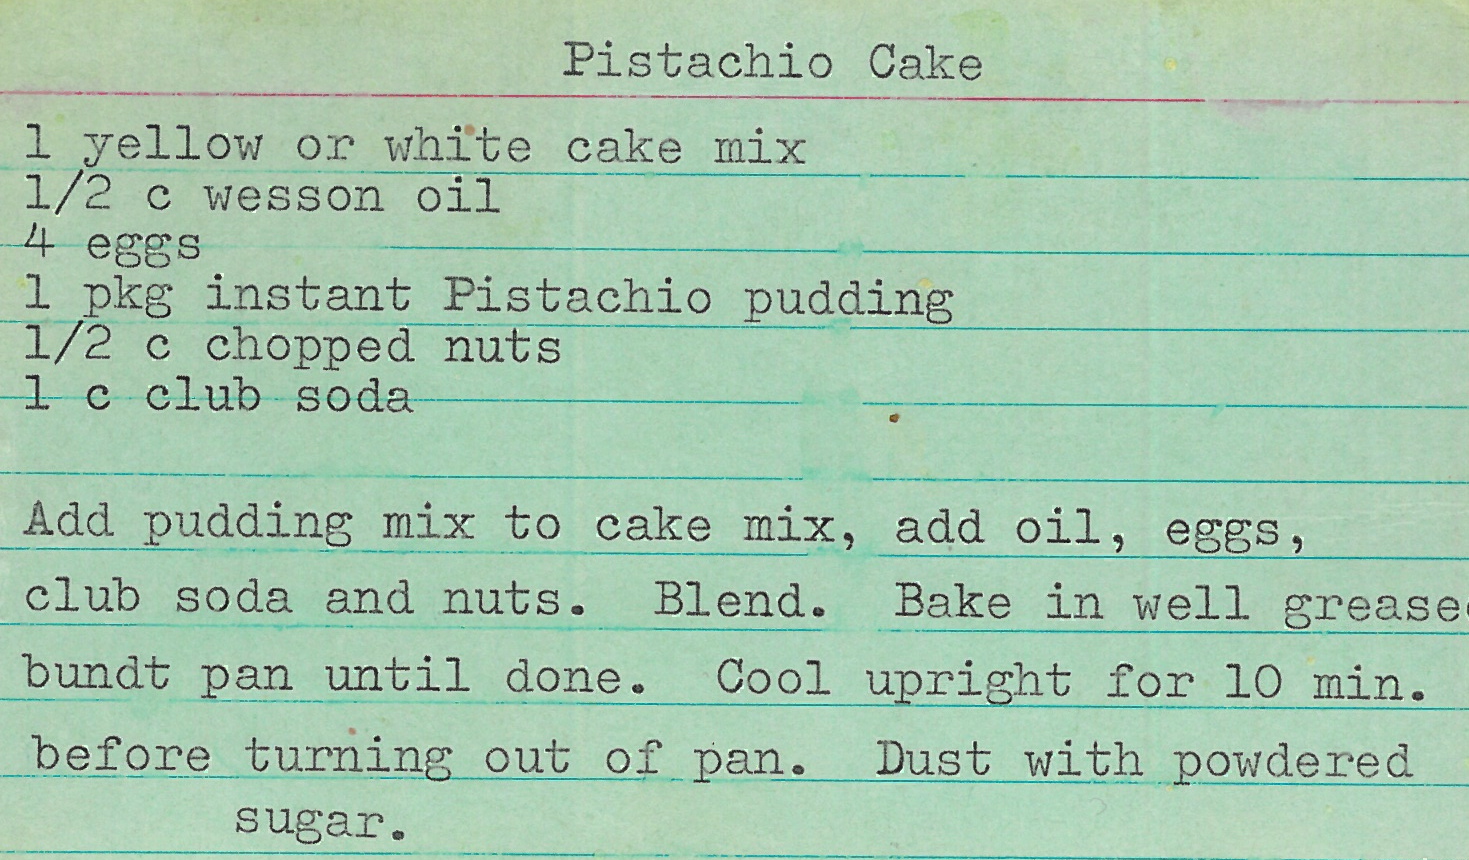 Pistachio Cake
1 yellow or white cake mix
1/2 c wesson oil
4 eggs
1 pkg instant Pistachio pudding
1/2 c chopped nuts
1 c club soda
Add pudding mix to cake mix, add oil, eggs,
club soda and nuts. Blend. Bake in well greased
bundt pan until done. Cool upright for 10 min.
before turning out of pan. Dust with powdered
sugar.